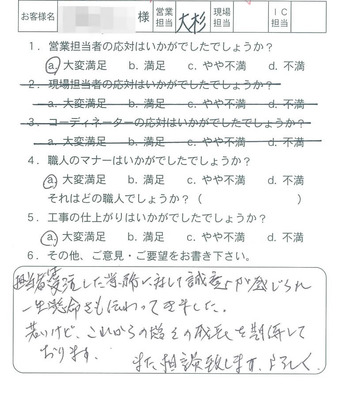 お客様名 様 営業担当 大杉 現場担当 IC担当
1. 営業担当者の応対はいかがでしたでしょうか?
a. 大変満足 b. 満足 c. やや不満 d. 不満
2. 現場担当者の応対はいかがでしたでしょうか?
a. 大変満足 b. 満足 c. やや不満 d. 不満
3. コーディネーターの応対はいかがでしたでしょうか?
a. 大変満足 b. 満足 c. やや不満 d. 不満
4. 職人のマナーはいかがでしたでしょうか?
a. 大変満足 b. 満足 c. やや不満 d. 不満
それはどの職人でしょうか?( )
5. 工事の仕上がりはいかがでしたでしょうか?
a. 大変満足 b. 満足 c. やや不満 d. 不満
6. その他、ご意見・ご要望をお書き下さい。
担当者 した に対し誠意が感じられ
一生懸命さも伝わってきました。
若いけど、これからの 成長を期待して
おります。
また相談致します。よろしく